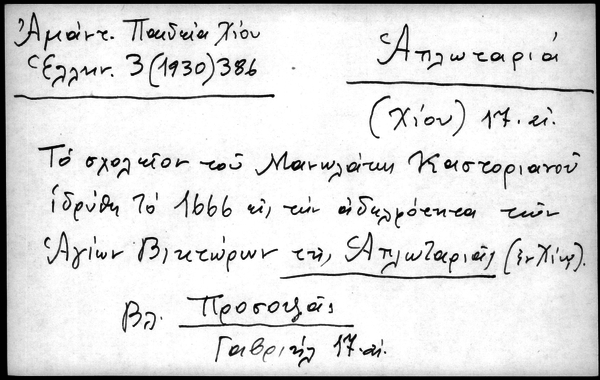 Ἀμάντ. Παιδεία Χίου
Ἑλλην. 3 (1930) 386
Ἁπλωταριά
(Χίου) 17. αἰ.
Τό σχολεῖον τοῦ Μανωλάκη Καστοριανοῦ
ἱδρύθη τό 1666 εἰς τήν ἀδελφότητα τῶν
Ἁγίων Βικτώρων τῆς Ἁπλωταριᾶς (ἐν Χίῳ).
Βλ.
Γαβριήλ 17. αἰ.